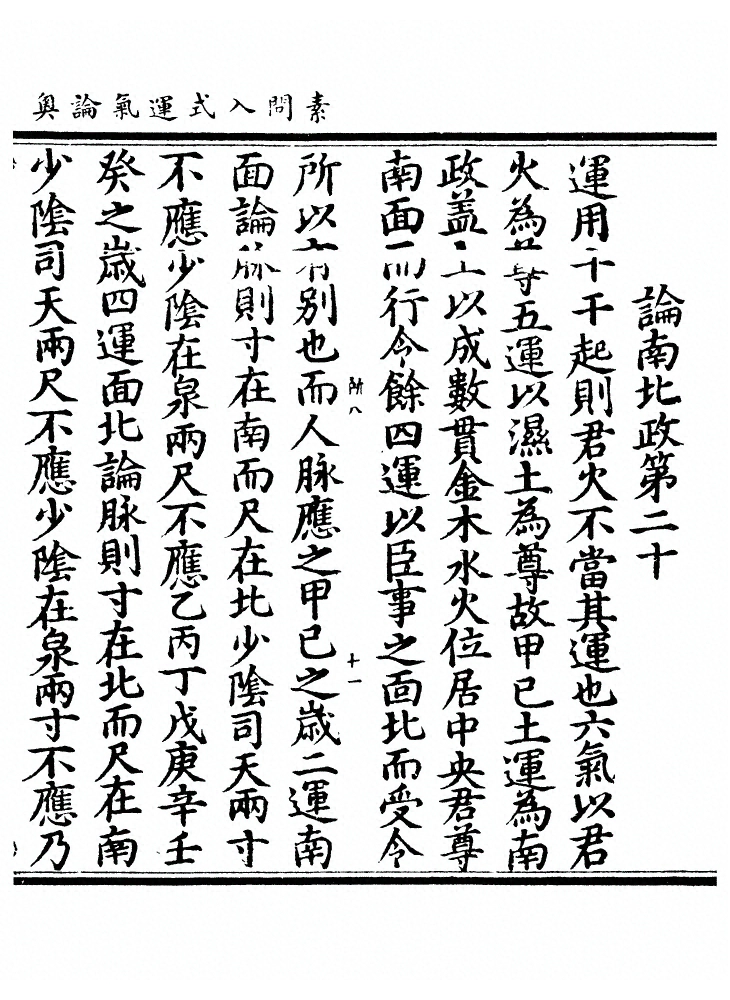 素問入式運氣論奧
論南北政第二十
運用十干起則君火不當其運也六氣以君
火為尊五運以濕土為尊故甲已土運為南
政蓋土以成數貫金木水火位居中央君尊
南面而行令餘四運以臣事之面北而受令
所八 十一
所以有別也而人脉應之甲已之歲二運南
面論脉則寸在南而尺在北少陰司天兩寸
不應少陰在泉兩尺不應乙丙丁戊庚辛壬
癸之歲四運面北論脉則寸在北而尺在南
少陰司天兩尺不應少陰在泉兩寸不應乃